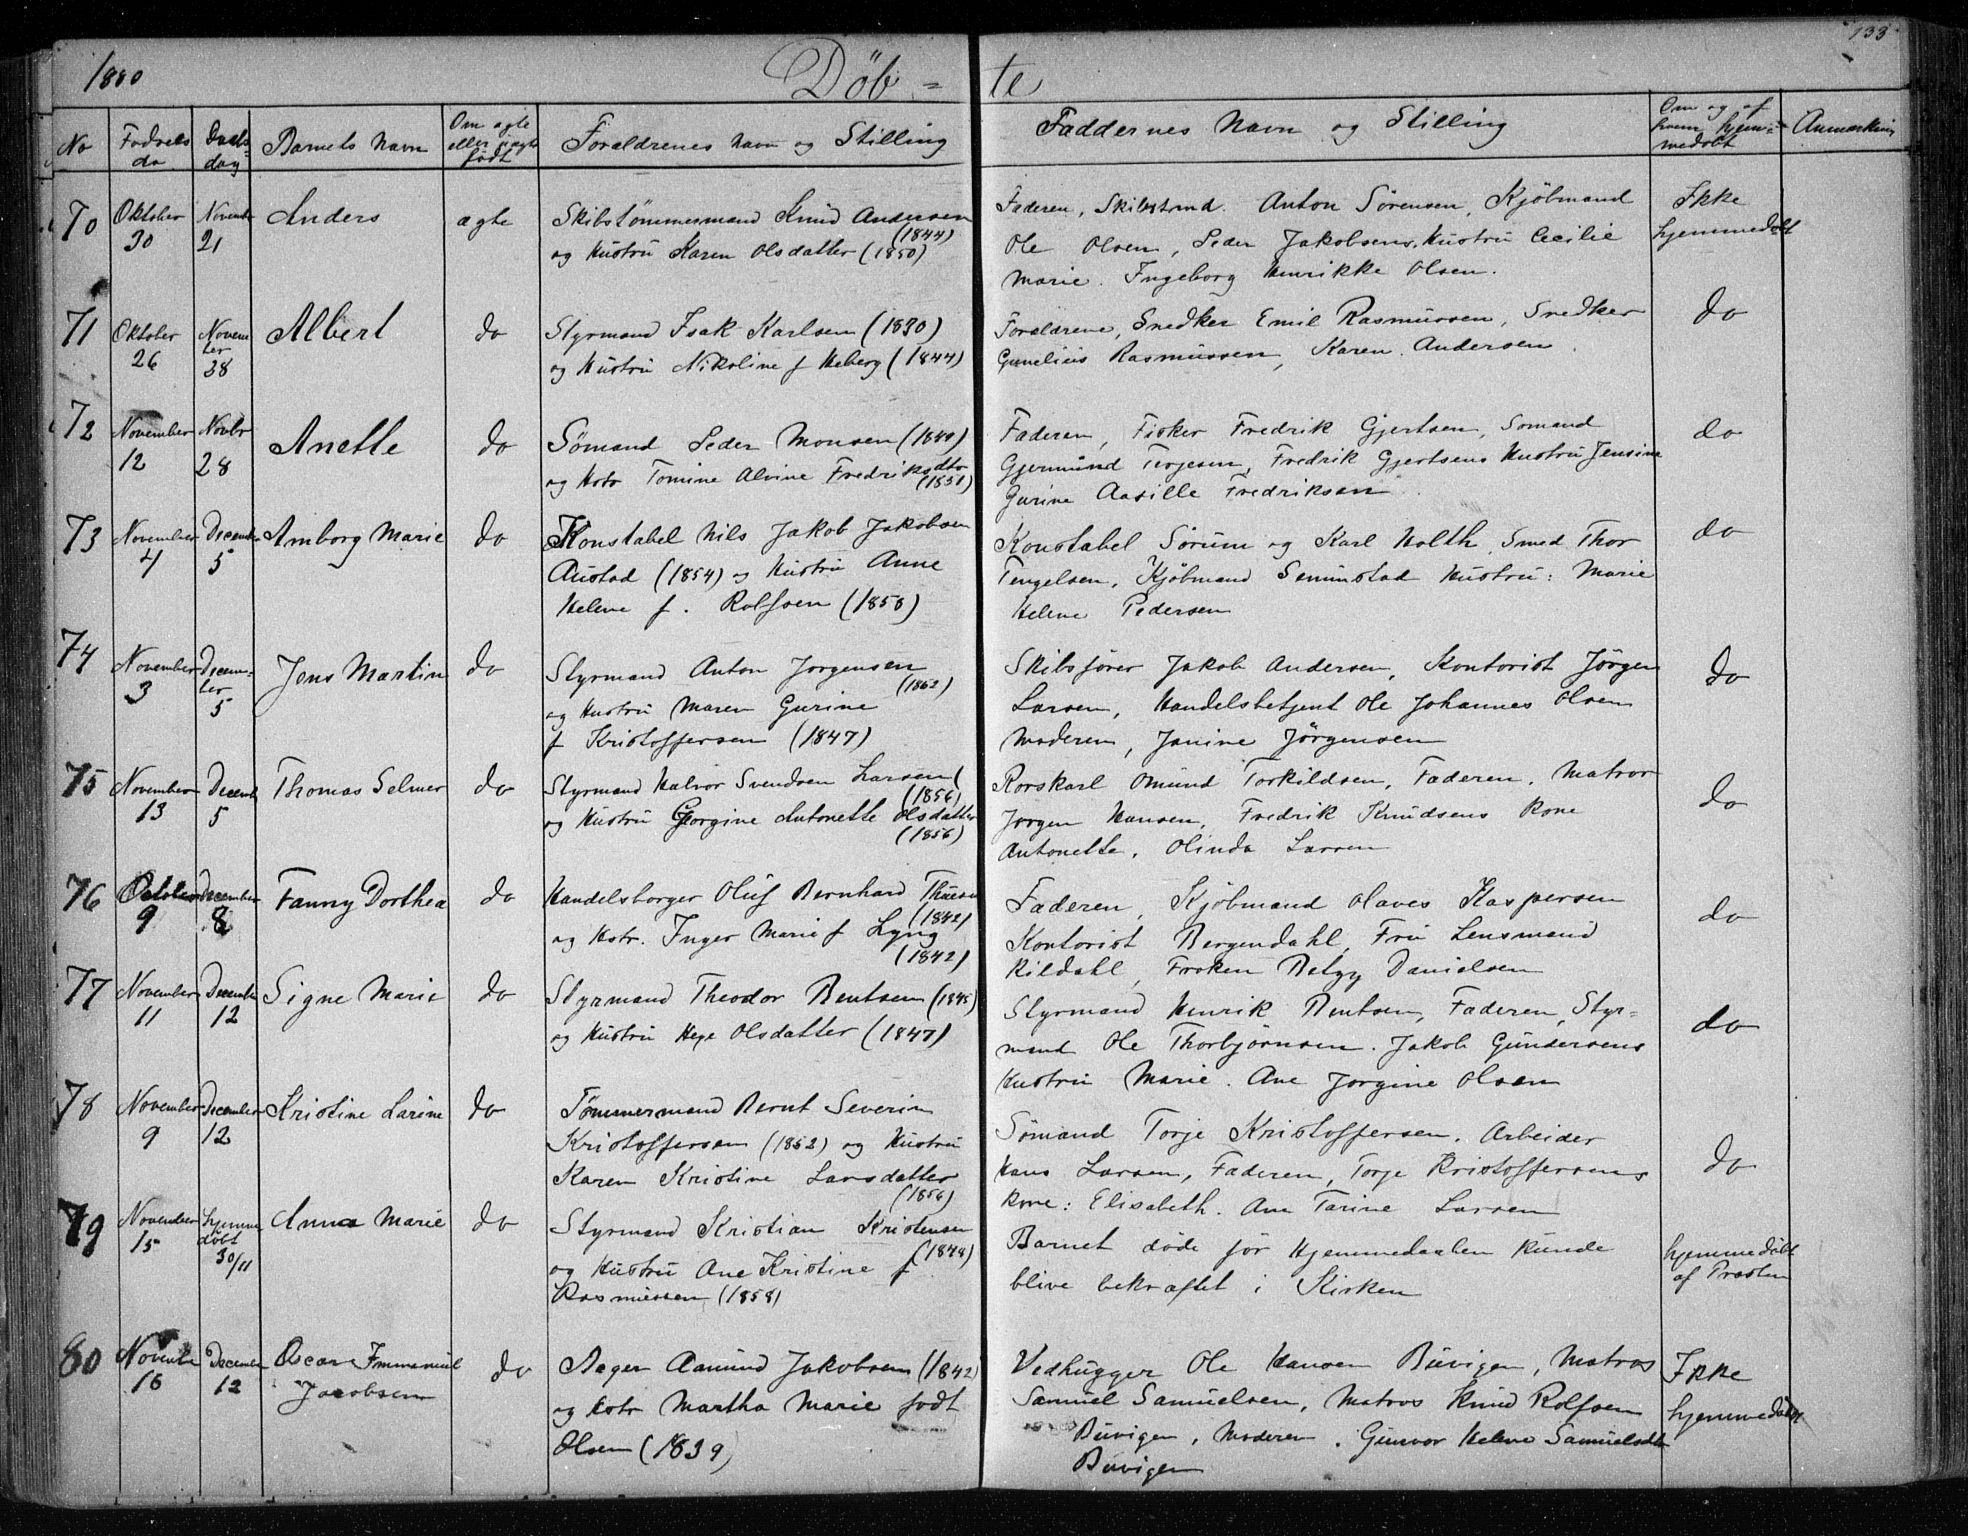 1880 Döb = te 133
No
Fødsels da
Daabs= dag
Barnets Navn
Om ægte eller uægte født
Forældrenes Navn og Stilling
Faddernes Navn og Stilling
Om og af hvem hjem= medøbt
Anmærkning
70 Oktober 30 Novembr 21 Anders ægte
Skibstømmermand Knud Andersen (1844)
og Hustru Karen Olsdatter (1850)
Faderen, Skibstmd. Anton Sörensen, Kjöbmand
Ole Olsen, Peder Jakobsens Hustru Cecilie
Marie. Ingeborg Henrikke Olsen.
Ikke hjemmedøbt
71 Oktober 26 Novem ber 28 Albert do
Styrmand Isak Karlsen (1830)
og Hustru Nikoline f Heberg (1844)
Forældrene, Snedker Emil Rasmussen, Snedker
Gunelius Rasmussen, Karen Andersen
do
72 November 12 Novbr 28 Anette do
Sömand Peder Monsen (1849)
og Hstr Tomine Alvine Fredriksdtr (1851)
Faderen, Fisker Fredrik Gjertsen, Sømand
Gjermund Terjesen, Fredrik Gjertsens Hustru Jensine
Gurine Aasille Fredriksen
do
73 November 4 December 5 Amborg Marie do
Konstabel Nils Jakob Jakobsen
Austad (1854) og Hustru Anne
Helene f. Rolfsen (1850)
Konstabel Sörum og Karl Holth, Smed Thor
Tengelsen, Kjöbmand Semmstad Hustru: Marie
Helene Pedersen
do
74 November 3 Decem= ber 5 Jens Martin do
Styrmand Anton Jorgensen (1862)
og Hustru Maren Gurine
f Kristoffersen (1847)
Skibsförer Jakob Andersen, Kontorist Jörgen
Larsen, Handelsbetjent Ole Johannes Olsen
Moderen, Janine Jörgensen
do
75 November 13 Decemb 5 Thomas Selmer do
Styrmand Halvor Svendsen Larsen (1856)
og Hustru Georgine Antonette Olsdatter (1856)
Rorskarl Omund Torkildsen, Faderen, Matros
Jorgen Hansen, Fredrik Knudsens Kone
Antonette, Olinda Larsen
do
76 October 9 December 8 Fanny Dorthea do
Handelsborger Oluf Bernhard Thuesen (1842)
og Hstr. Inger Marie f Lyng (1842)
Faderen, Kjöbmand Olaves Kaspersen
Kontorist Bergendahl, Fru Lensmand
Kildahl, Froken Betzy Danielsen
do
77 November 11 Decembe 12 Signe Marie do
Styrmand Theodor Bentsen (1845)
og Hustru Hege Olsdatter (1847)
Styrmand Henrik Bentsen, Faderen, Styr=
mand Ole Thorbjörnsen. Jakob Gundersens
Hustru Marie. Ane Jorgine Olsen
do
78 November 9 December 12 Kristine Larine do
Tömmermand Bernt Severin
Kristoffersen (1852) og Hustru
Karen Kristine Larsdatter (1856)
Sömand Torje Kristoffersen, Arbeider
Hans Larsen, Faderen, Torje Kristoffersens
Kone: Elisabeth. Ane Tarine Larsen
do
79 November 15 hjemme døbt 30/11 Anna Marie do
Styrmand Kristian Kristensen (1848)
og Hustru Ane Kristine f
Rasmussen (1858)
Barnet döde för Hjemmedaaben kunde
blive bekræftet i Kirken
hjemmedøbt af Præsten
80 Novembr 16 December 12 Oscar Immanuel Jacobsen do
Bager Aamund Jakobsen (1842)
og Hstr Martha Marie født
Olsen (1839)
Vedhugger Ole Hansen Buvigen, Matros
Samuel Samuelsen, Matros Knud Rolfsen
Buvigen, Moderen, Gunvor Helene Samuelsdtr
Buvigen
Ikke hjemmedøbt